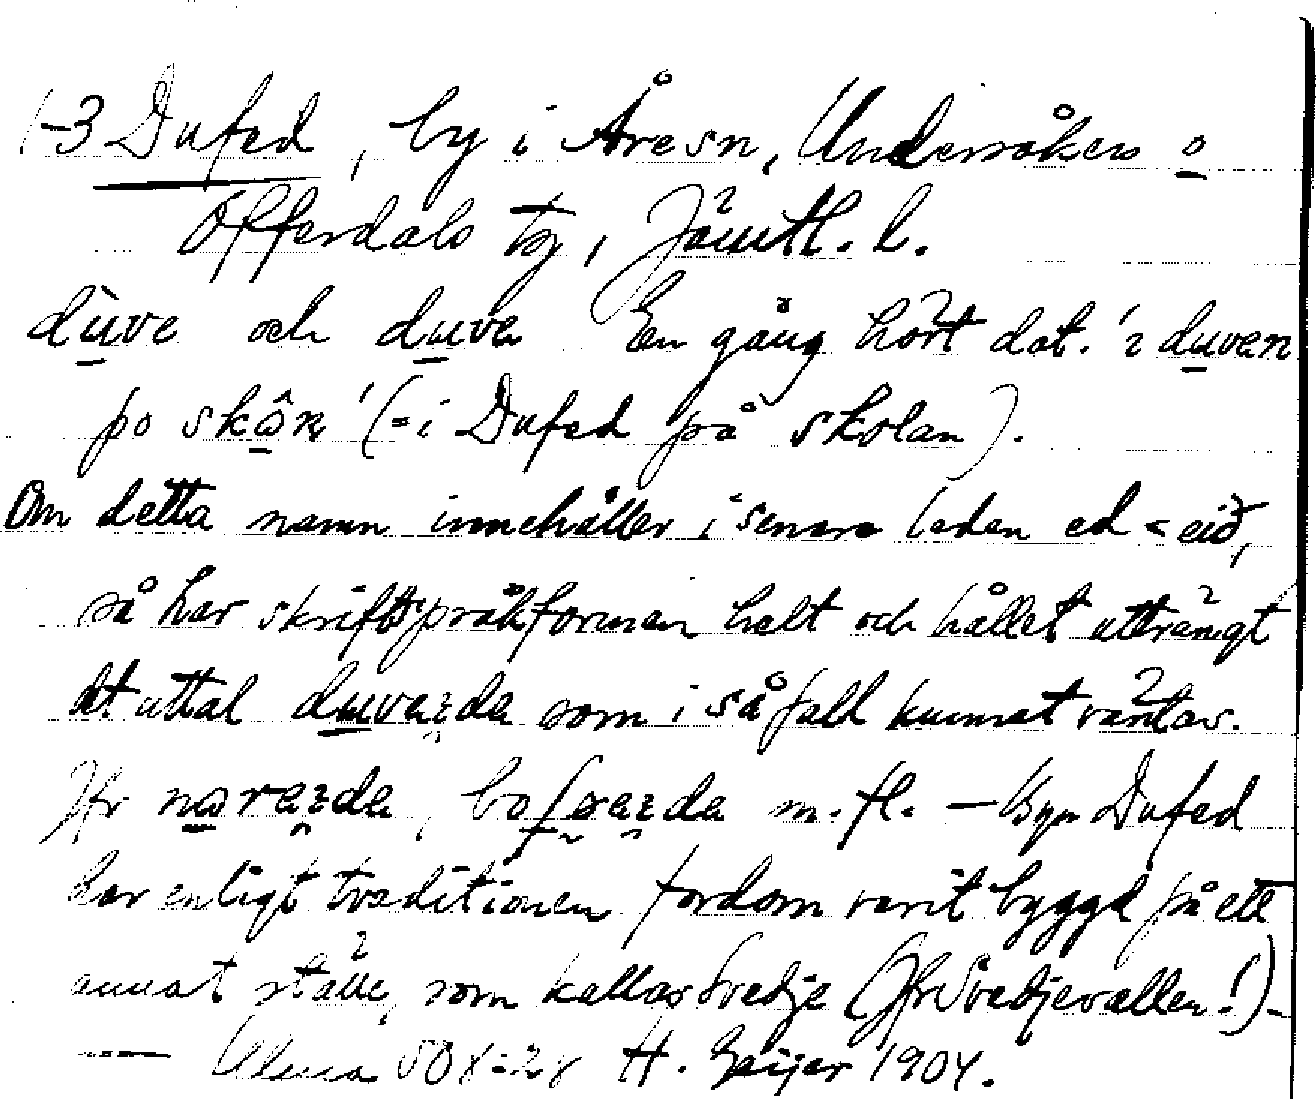 1-3 Dufed, by i Åre sn, Undersåkers o
Offerdals tg, Jämtl. l.
dùve och duve En gång hört dat. 'i duven
po skôn' (= i Dufed på skolan).
Om detta namn innehåller i senare leden ed < eið,
så har skriftspråksformen helt och hållet utträngt
det uttal duvaizda som i så fall kunnat väntas.
Jfr naraizda, m. fl. – Byn Dufed
har enligt traditionen fordom varit byggd på ett
annat ställe, som kallas Svedje (Jfr Svedjevallen!).–
— H. Geijer 1904.